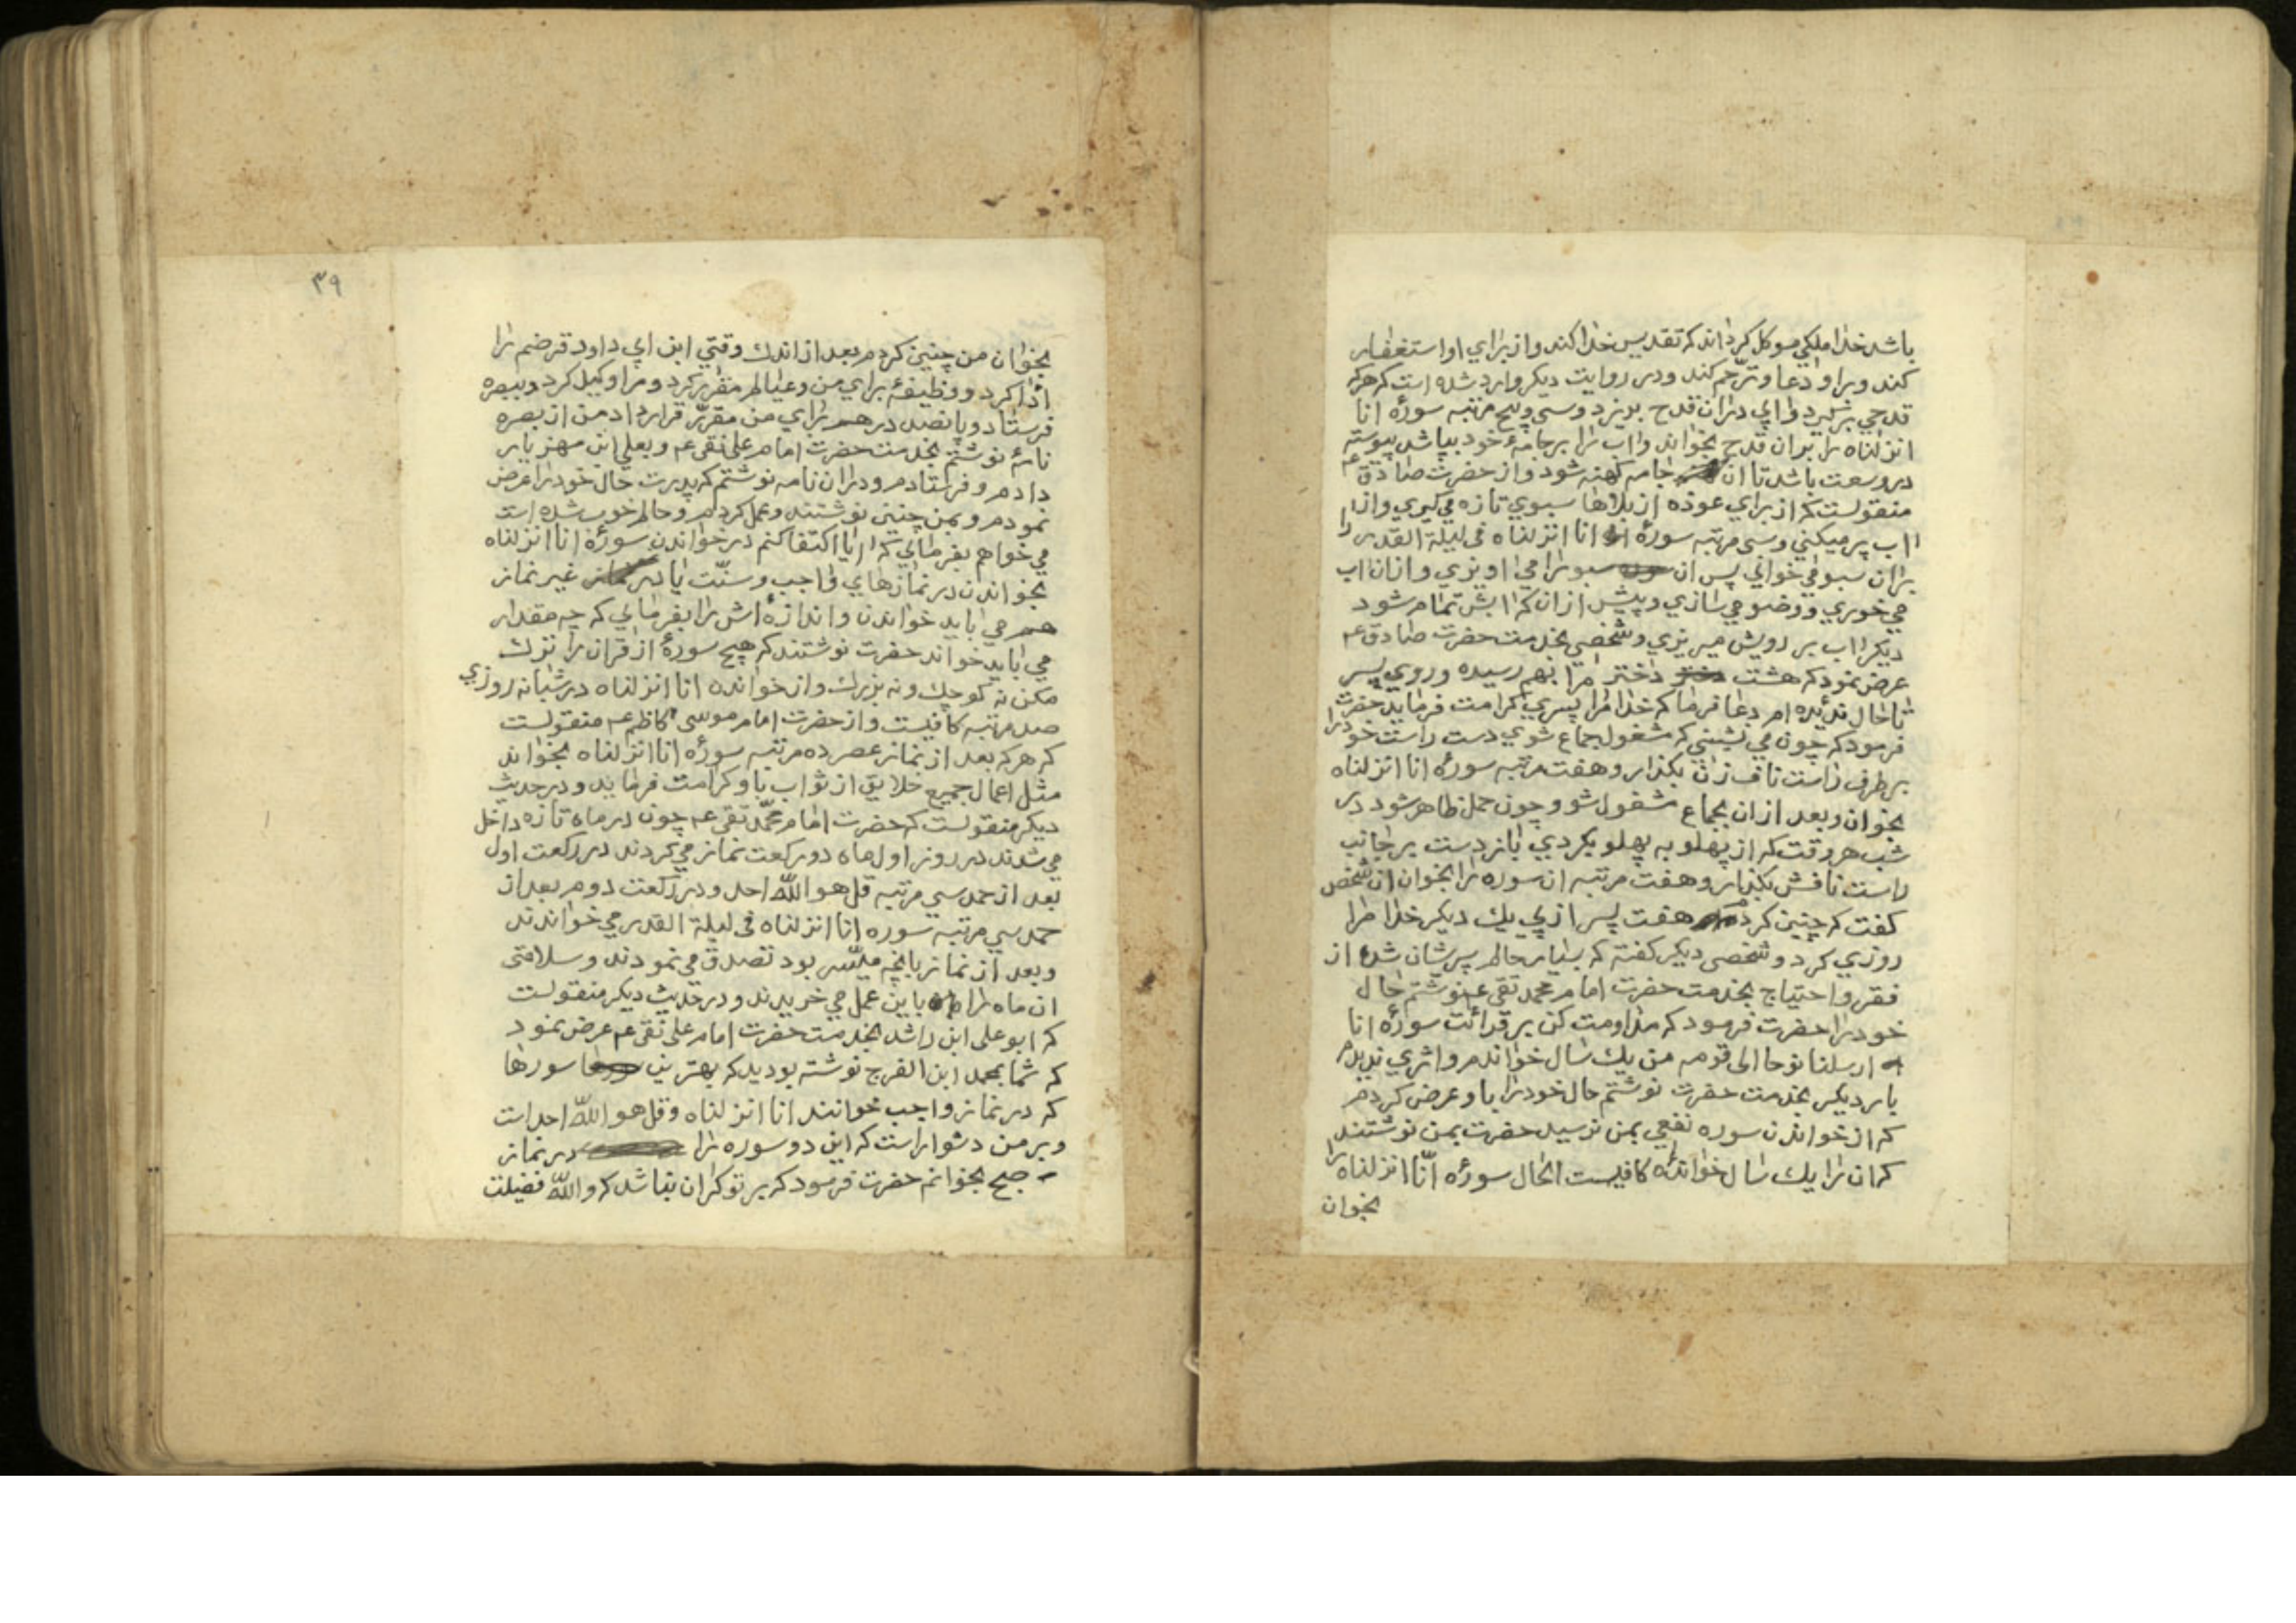 باشد خدا ملكي موكل كرداند كه تقديس خدا كند و از براي او استغفار
كند و بر او دعا و ترحّم كند و در روايت ديكر وارد شده است كه هركه
قدحي بركيرد و ابي در ان قدح بريزد و سي و پنج مرتبه سورۀ انا
انزلناه را بر ان قدح بخواند و اب را بر جامۀ خود بپاشد پيوسته
در وسعت باشد تا ان جامه كهنه شود و از حضرت صادق عم
منقولست كه از براي عوذه از بلاها سبوي تازه مي كيري و از
اب پر ميكني و سي مرتبه سورۀ انا انزلناه في ليلة القدر را
بر ان سبو مي خواني پس ان سبو را مي اويزي و از ان اب
مي خوري و وضو مي سازي و پيش از ان كه ابش تمام شود
ديكر اب بر رويش ميريزي و شخصي بخدمت حضرت صادق عم
عرض نمود كه هشت دختر مرا بهم رسيده و روي پسر
تا حال نديده ام دعا فرما كه خدا مرا پسري كرامت فرمايد حضرت
فرمود كه چون مي نشيني كه مشغول جماع شوي دست راست خود را
بر طرف راست ناف زن بكذار و هفت مرتبه سورۀ انا انزلناه
بخوان و بعد از ان بجماع مشغول شو و چون حمل ظاهر شود در
شب هر وقت كه از پهلو به پهلو بكردي باز دست بر جانب
راست نافش بكذار و هفت مرتبه ان سوره را بخوان ان شخص
كفت كه چنين كردم هفت پسر از پي يك ديكر خدا مرا
روزي كرد و شخصي ديكر كفته كه بسيار حالم پرشان شد از
فقر و احتياج بخدمت حضرت امام محمد تقي عم نوشتم حال
خود را حضرت فرمود كه مداومت كن بر قرائت سورۀ انا
ارسلنا نوحا الى قومه من يك سال خواندم و اثري نديدم
بار ديكر بخدمت حضرت نوشتم حال خود را باو عرض كردم
كه از خواندن سوره نفعي بمن نرسيد حضرت بمن نوشتند
كه ان را يك سال خواندۀ كافيست الحال سورۀ انّا انزلناه را
بخوان
٣٩
بخوان من چنين كردم بعد از اندك وقتي ابن ابي داود قرضم را
ادا كرد و وظيفۀ براي من و عيالم مقرر كرد و مرا وكيل كرد و ببصره
فرستاد و پانصد درهم براي من مقرّر قرار داد من از بصره
نامۀ نوشتم بخدمت حضرت امام على نقى عم و بعلي ابن مهزيار
دادم و فرستادم و در ان نامه نوشتم كه پدرت حال خود را عرض
نمودم و بمن چنين نوشتند و عمل كردم و حالم خوب شده است
مي خواهم بفرمائي كه ايا اكتفا كنم در خواندن سورۀ انا انزلناه
بخواندن در نمازهاي واجب و سنّت يا در غير نماز
هم مي بايد خواندن و اندازه اش را بفرمائي كه چه مقدار
مي بايد خواند حضرت نوشتند كه هيچ سورۀ از قران را ترك
مكن نه كوچك و نه بزرك و از خواندن انا انزلناه در شبانه روزي
صد مرتبه كافيست و از حضرت امام موسى كاظم عم منقولست
كه هركه بعد از نماز عصر ده مرتبه سورۀ انا انزلناه بخواند
مثل اعمال جميع خلايق از ثواب باو كرامت فرمايد و در حديث
ديكر منقولست كه حضرت امام محمّد تقى عم چون در ماه تازه داخل
مي شدند در روز اول ماه دو ركعت نماز مي كردند در ركعت اول
بعد از حمد سي مرتبه قل هو اللّه احد و در ركعت دوم بعد از
حمد سي مرتبه سوره انا انزلناه في ليلة القدر مي خواندند
و بعد از نماز بانچه ميسّر بود تصدق مي نمودند و سلامتي
ان ماه را باين عمل مي خريدند و در حديث ديكر منقولست
كه ابو على ابن راشد بخدمت حضرت امام على نقى عم عرض نمود
كه شما بمحمد ابن الفرج نوشته بوديد كه بهترين سورها
كه در نماز واجب خوانند انا انزلناه و قل هو اللّه احد است
و بر من دشوار است كه اين دو سوره را در نماز
صبح بخوانم حضرت فرمود كه بر تو كران نباشد كه واللّه فضيلت